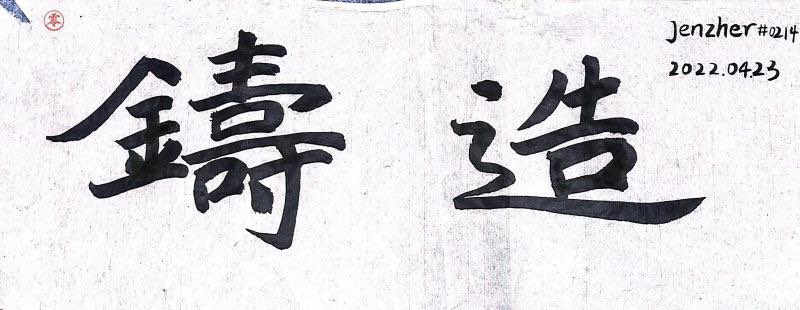 零
鑄造
Jenzher#0214
2022.04.23